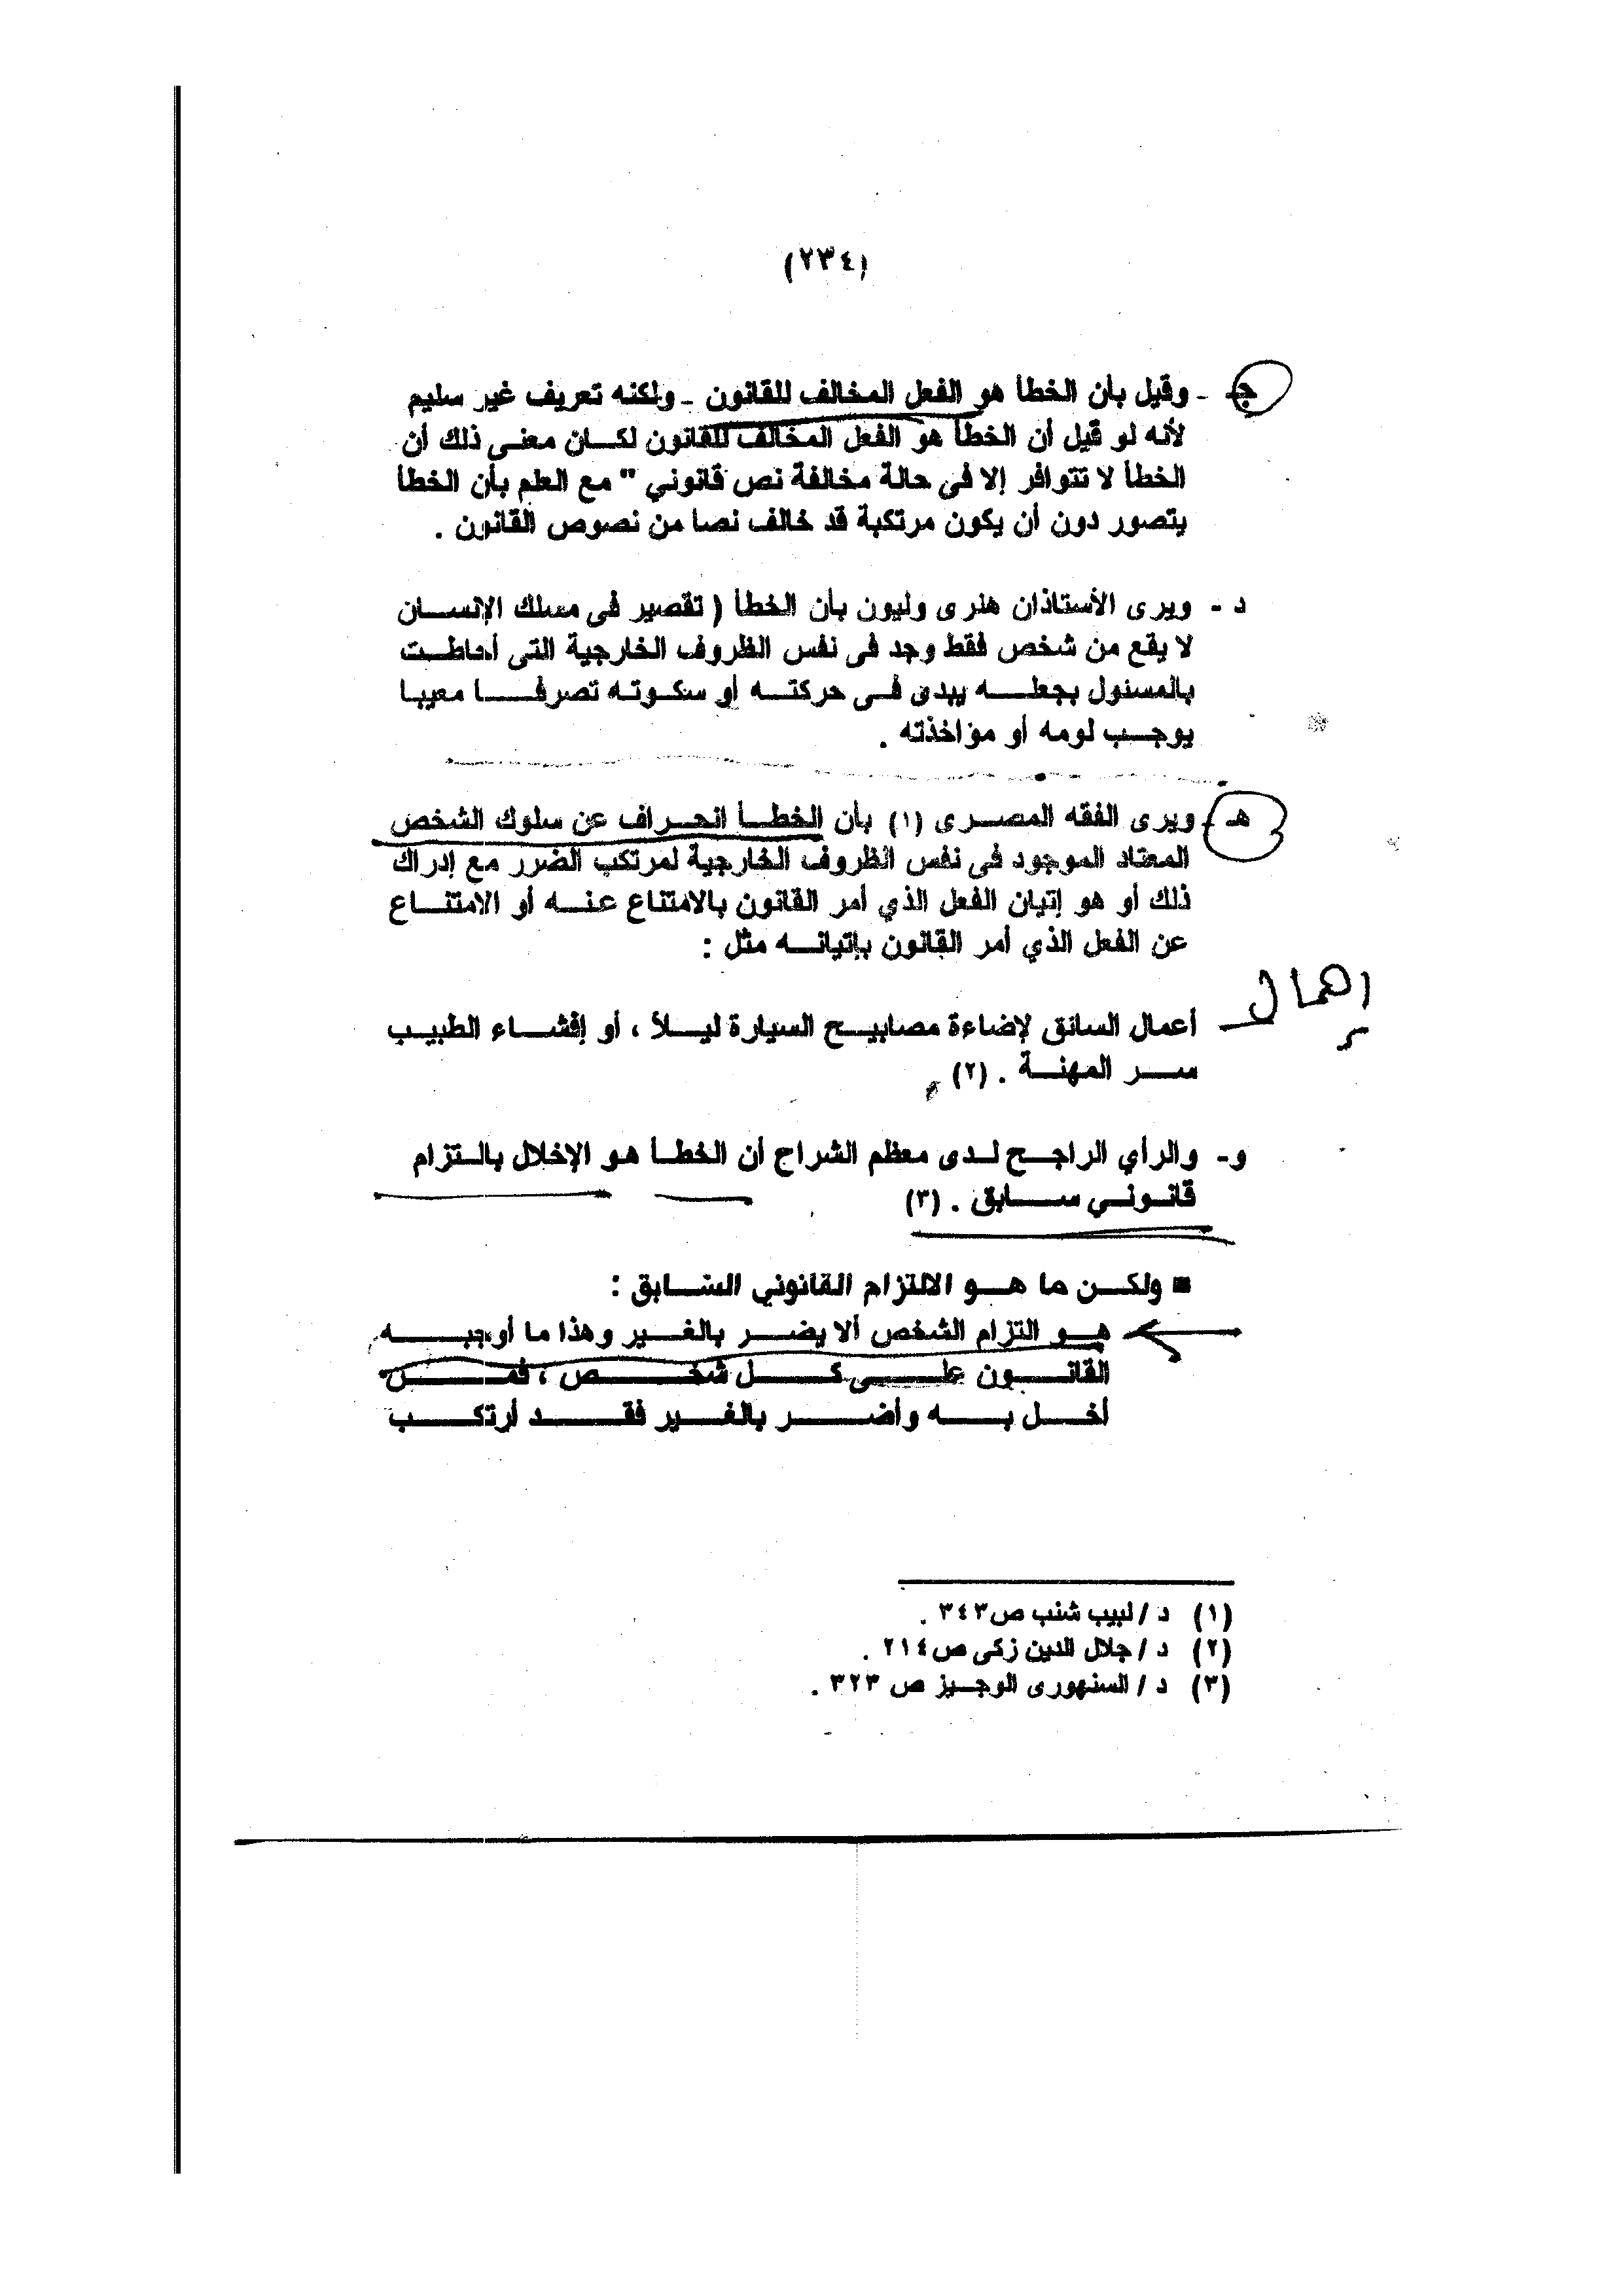 (٢٣٤)
جـ - وقيل بأن الخطأ هو الفعل المخالف للقانون - ولكنه تعريف غير سليم
لأنه لو قيل أن الخطأ هو الفعل المخالف للقانون لكان معنى ذلك أن
الخطأ لا تتوافر إلا فى حالة مخالفة نص قانوني " مع العلم بأن الخطأ
يتصور دون أن يكون مرتكبة قد خالف نصا من نصوص القانون .
د - ويرى الأستاذان هنرى وليون بأن الخطأ ( تقصير فى مسلك الإنسان
لا يقع من شخص فقط وجد فى نفس الظروف الخارجية التى أحاطت
بالمسئول بجعله يبدى فى حركته أو سكوته تصرفا معيبا
يوجب لومه أو مؤاخذته .
هـ - ويرى الفقه المصرى (١) بأن الخطأ انحراف عن سلوك الشخص
المعتاد الموجود فى نفس الظروف الخارجية لمرتكب الضرر مع إدراك
ذلك أو هو إتيان الفعل الذي أمر القانون بالامتناع عنه أو الامتناع
عن الفعل الذي أمر القانون بإتيانه مثل :
إهمال
أعمال السائق لإضاءة مصابيح السيارة ليلاً ، أو إفشاء الطبيب
سر المهنة . (٢)
و- والرأي الراجح لدى معظم الشراح أن الخطأ هو الإخلال بالتزام
قانوني سابق . (٣)
■ ولكن ما هو الالتزام القانوني السابق :
هو التزام الشخص ألا يضر بالغير وهذا ما أوجبه
القانون على كل شخص ، فمن
أخل به وأضر بالغير فقد أرتكب
(١) د / لبيب شنب ص٣٤٣ .
(٢) د / جلال الدين زكى ص٢١٤ .
(٣) د / السنهورى الوجيز ص ٣٢٣ .